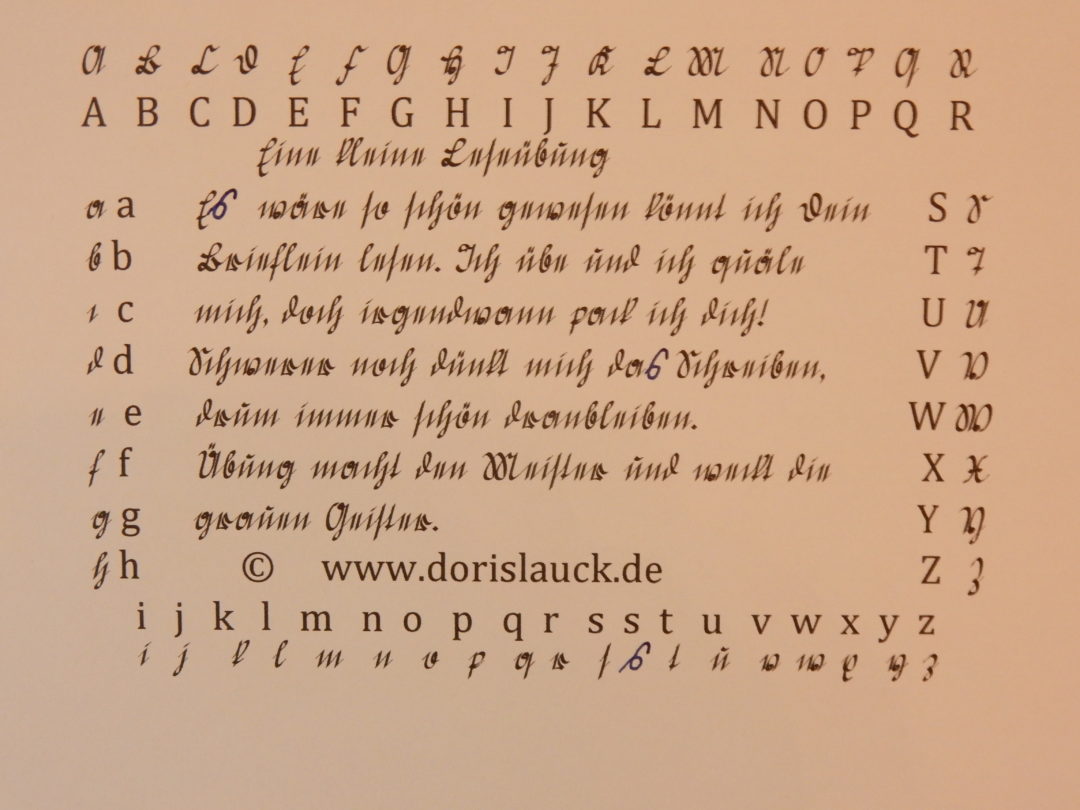 A B C D E F G H I J K L M N O P Q R
A B C D E F G H I J K L M N O P Q R
Eine kleine Leseübung
a a Es wäre so schön gewesen könnt ich Dein S S
b b Brieflein lesen. Ich übe und ich quäle T T
c c mich, doch irgendwann pack ich dich! U U
d d Schwerer noch dünkt mich das Schreiben, V V
e e drum immer schön dranbleiben. W W
f f Übung macht den Meister und weckt die X X
g g grauen Geister. Y Y
h h © www.dorislauck.de Z Z
i j k l m n o p q r s s t u v w x y z
i j k l m n o p q r s s t u v w x y z